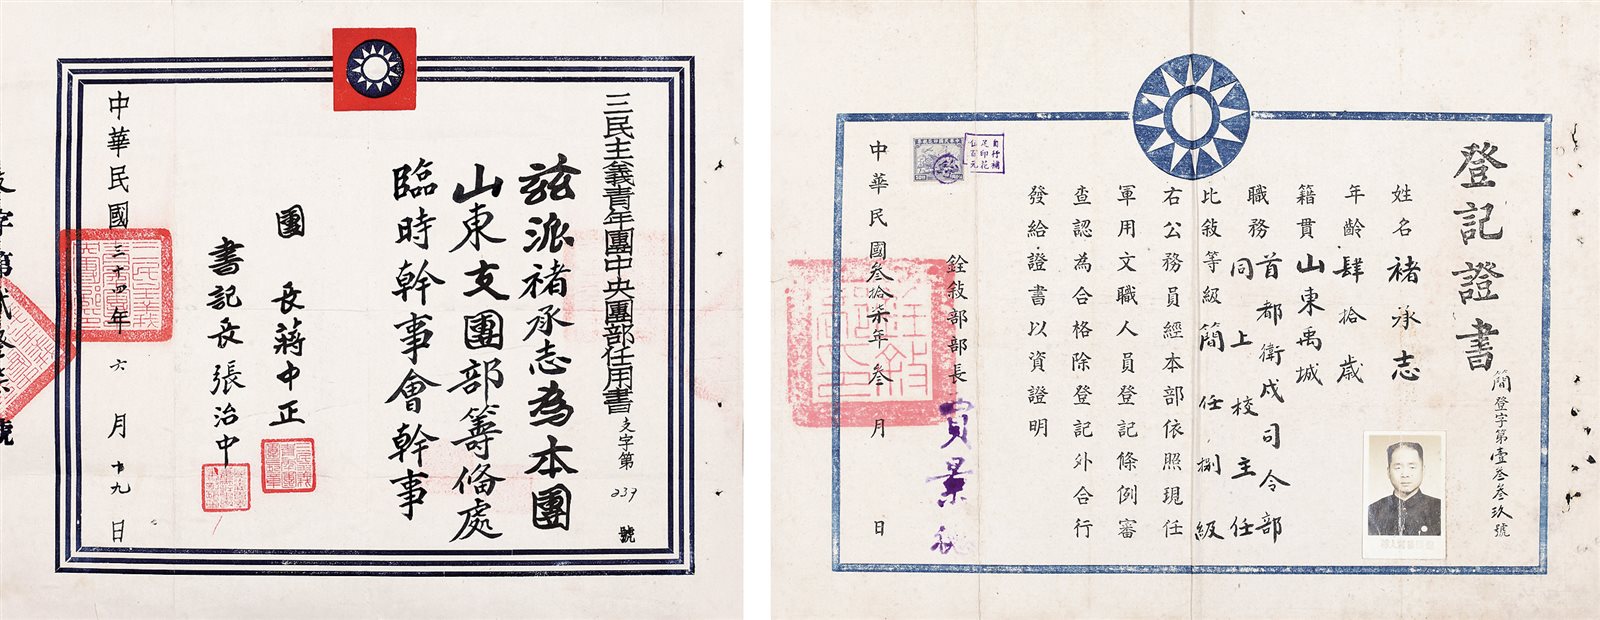 三民主義青年團中央團部任用書
支字第239號
茲派褚承志為本團
山東支團部籌俻處
臨時幹事會幹事
團長蔣中正
書記長張治中
中華民國三十四年六月十九日
登記證書
簡登字第壹叁叁玖號
姓名褚承志
年齡肆拾歲
籍貫山東禹城
職務首都衛戍司令部
同上校主任
比敘等級簡任捌級
右公務員經本部依照現任
軍用文職人員登記條例審
查認為合格除登記外合行
發給證書以資證明
銓敍部部長賈景德
自行補
足印花
伍百元
中華民國叁拾柒年叁月日